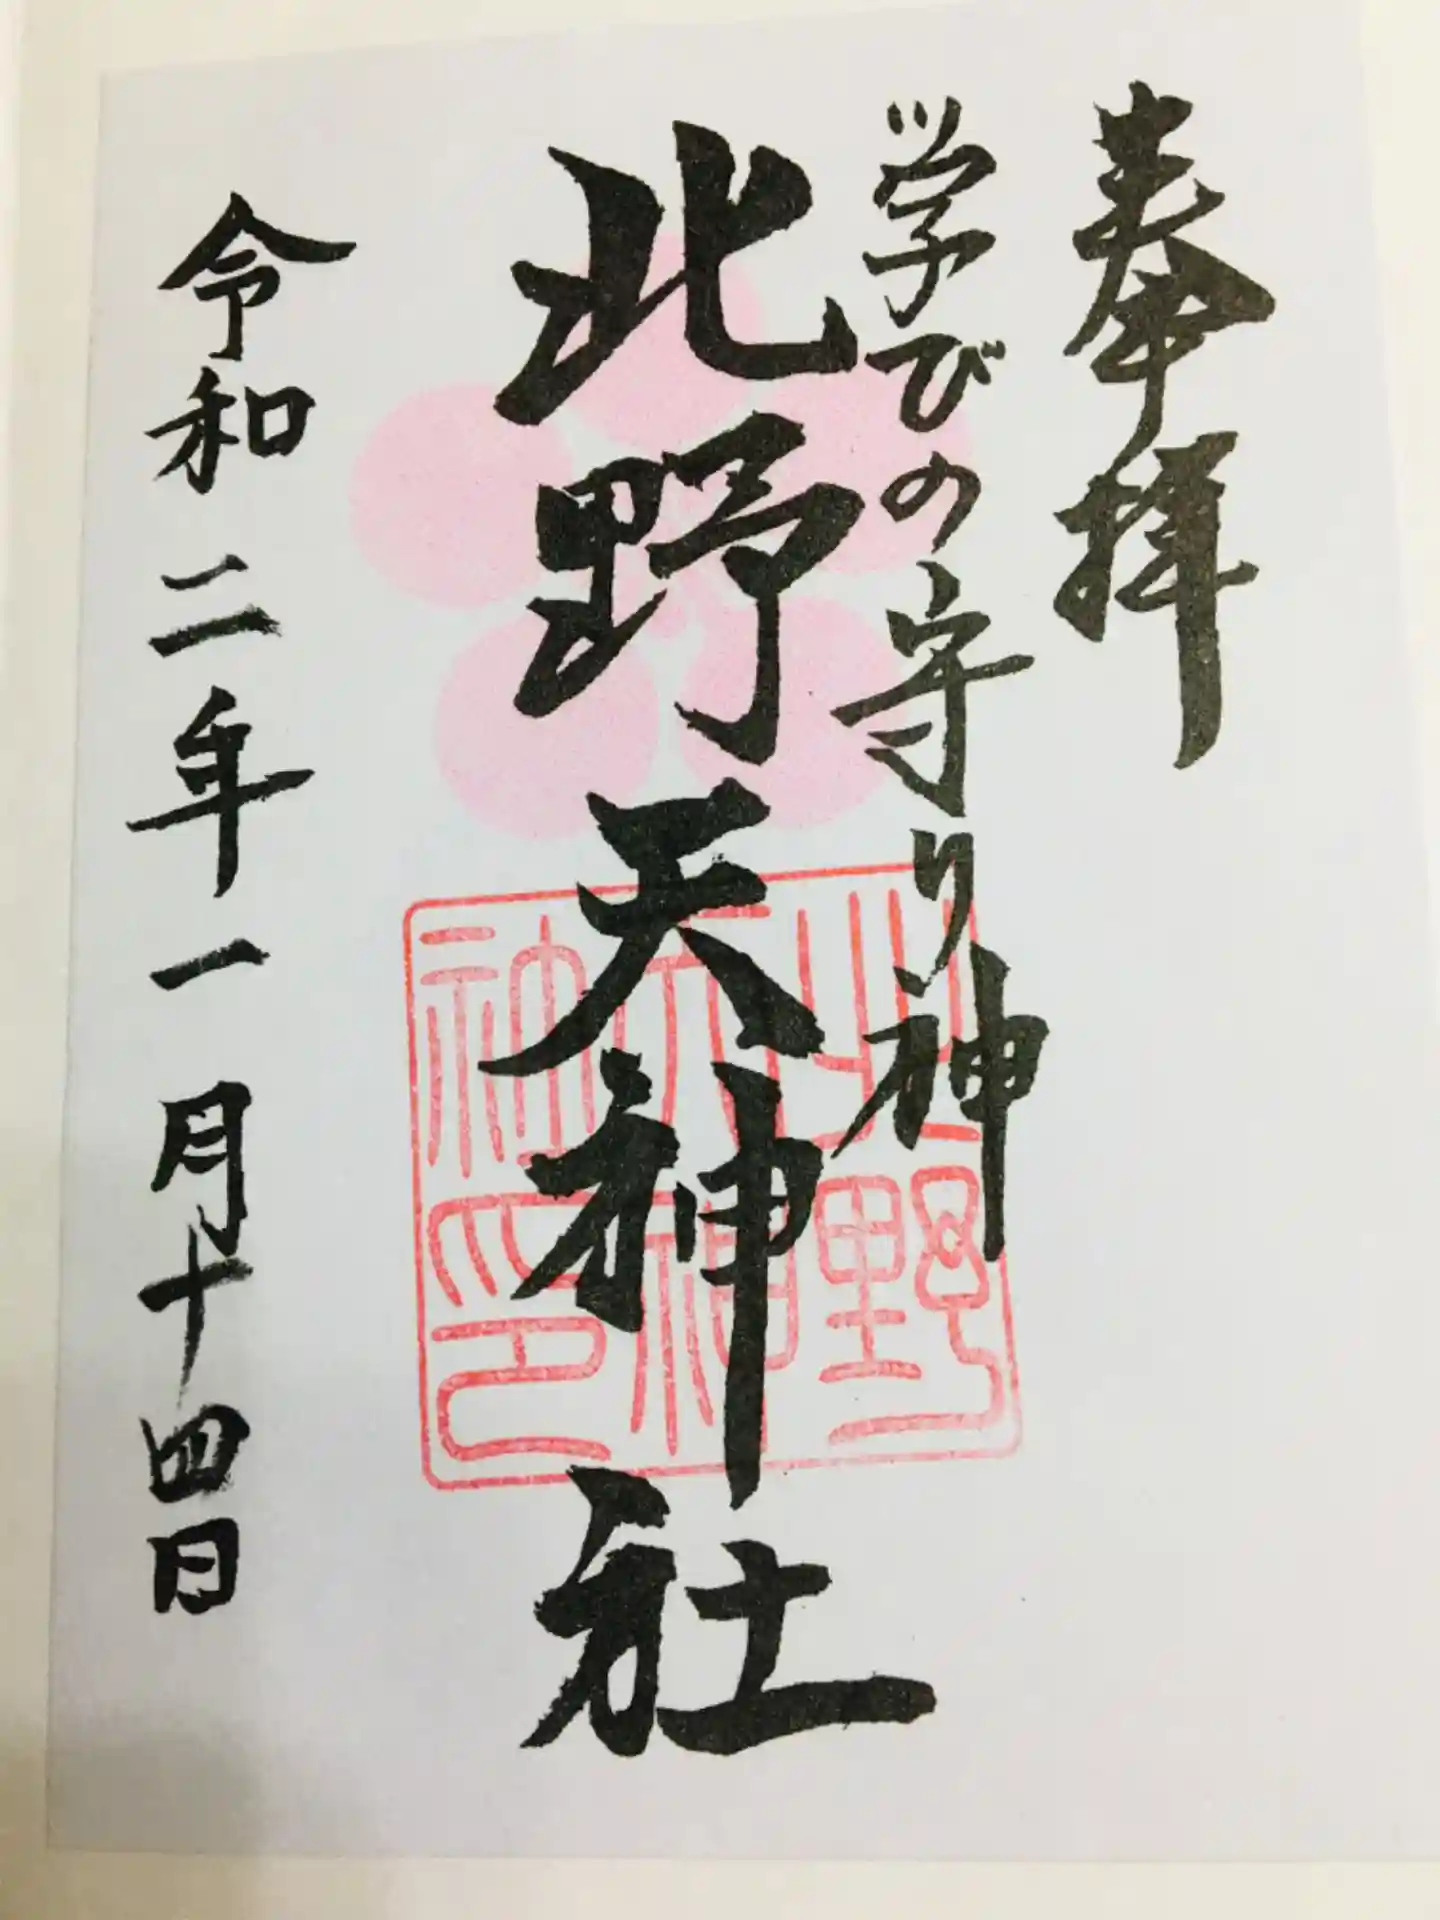 奉拝
学びの守り神
北野天神社
北野
天神
社印
令和二年一月十四日